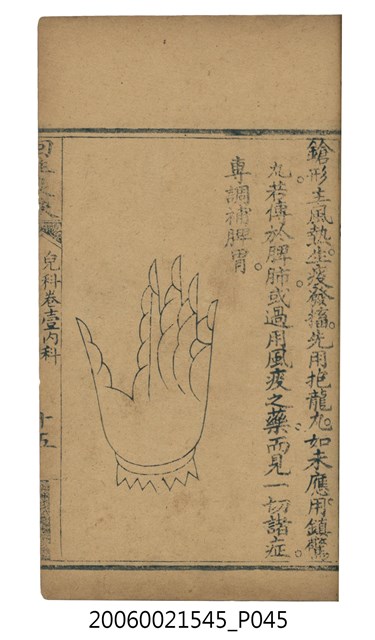 鎗形主風熱生痰發搐先用抱龍丸如未應用鎮驚
丸若傳於脾肺或過用風痰之藥而見一切諸症
專調補脾胃
兒科卷壹內科
十五
20060021545_P045